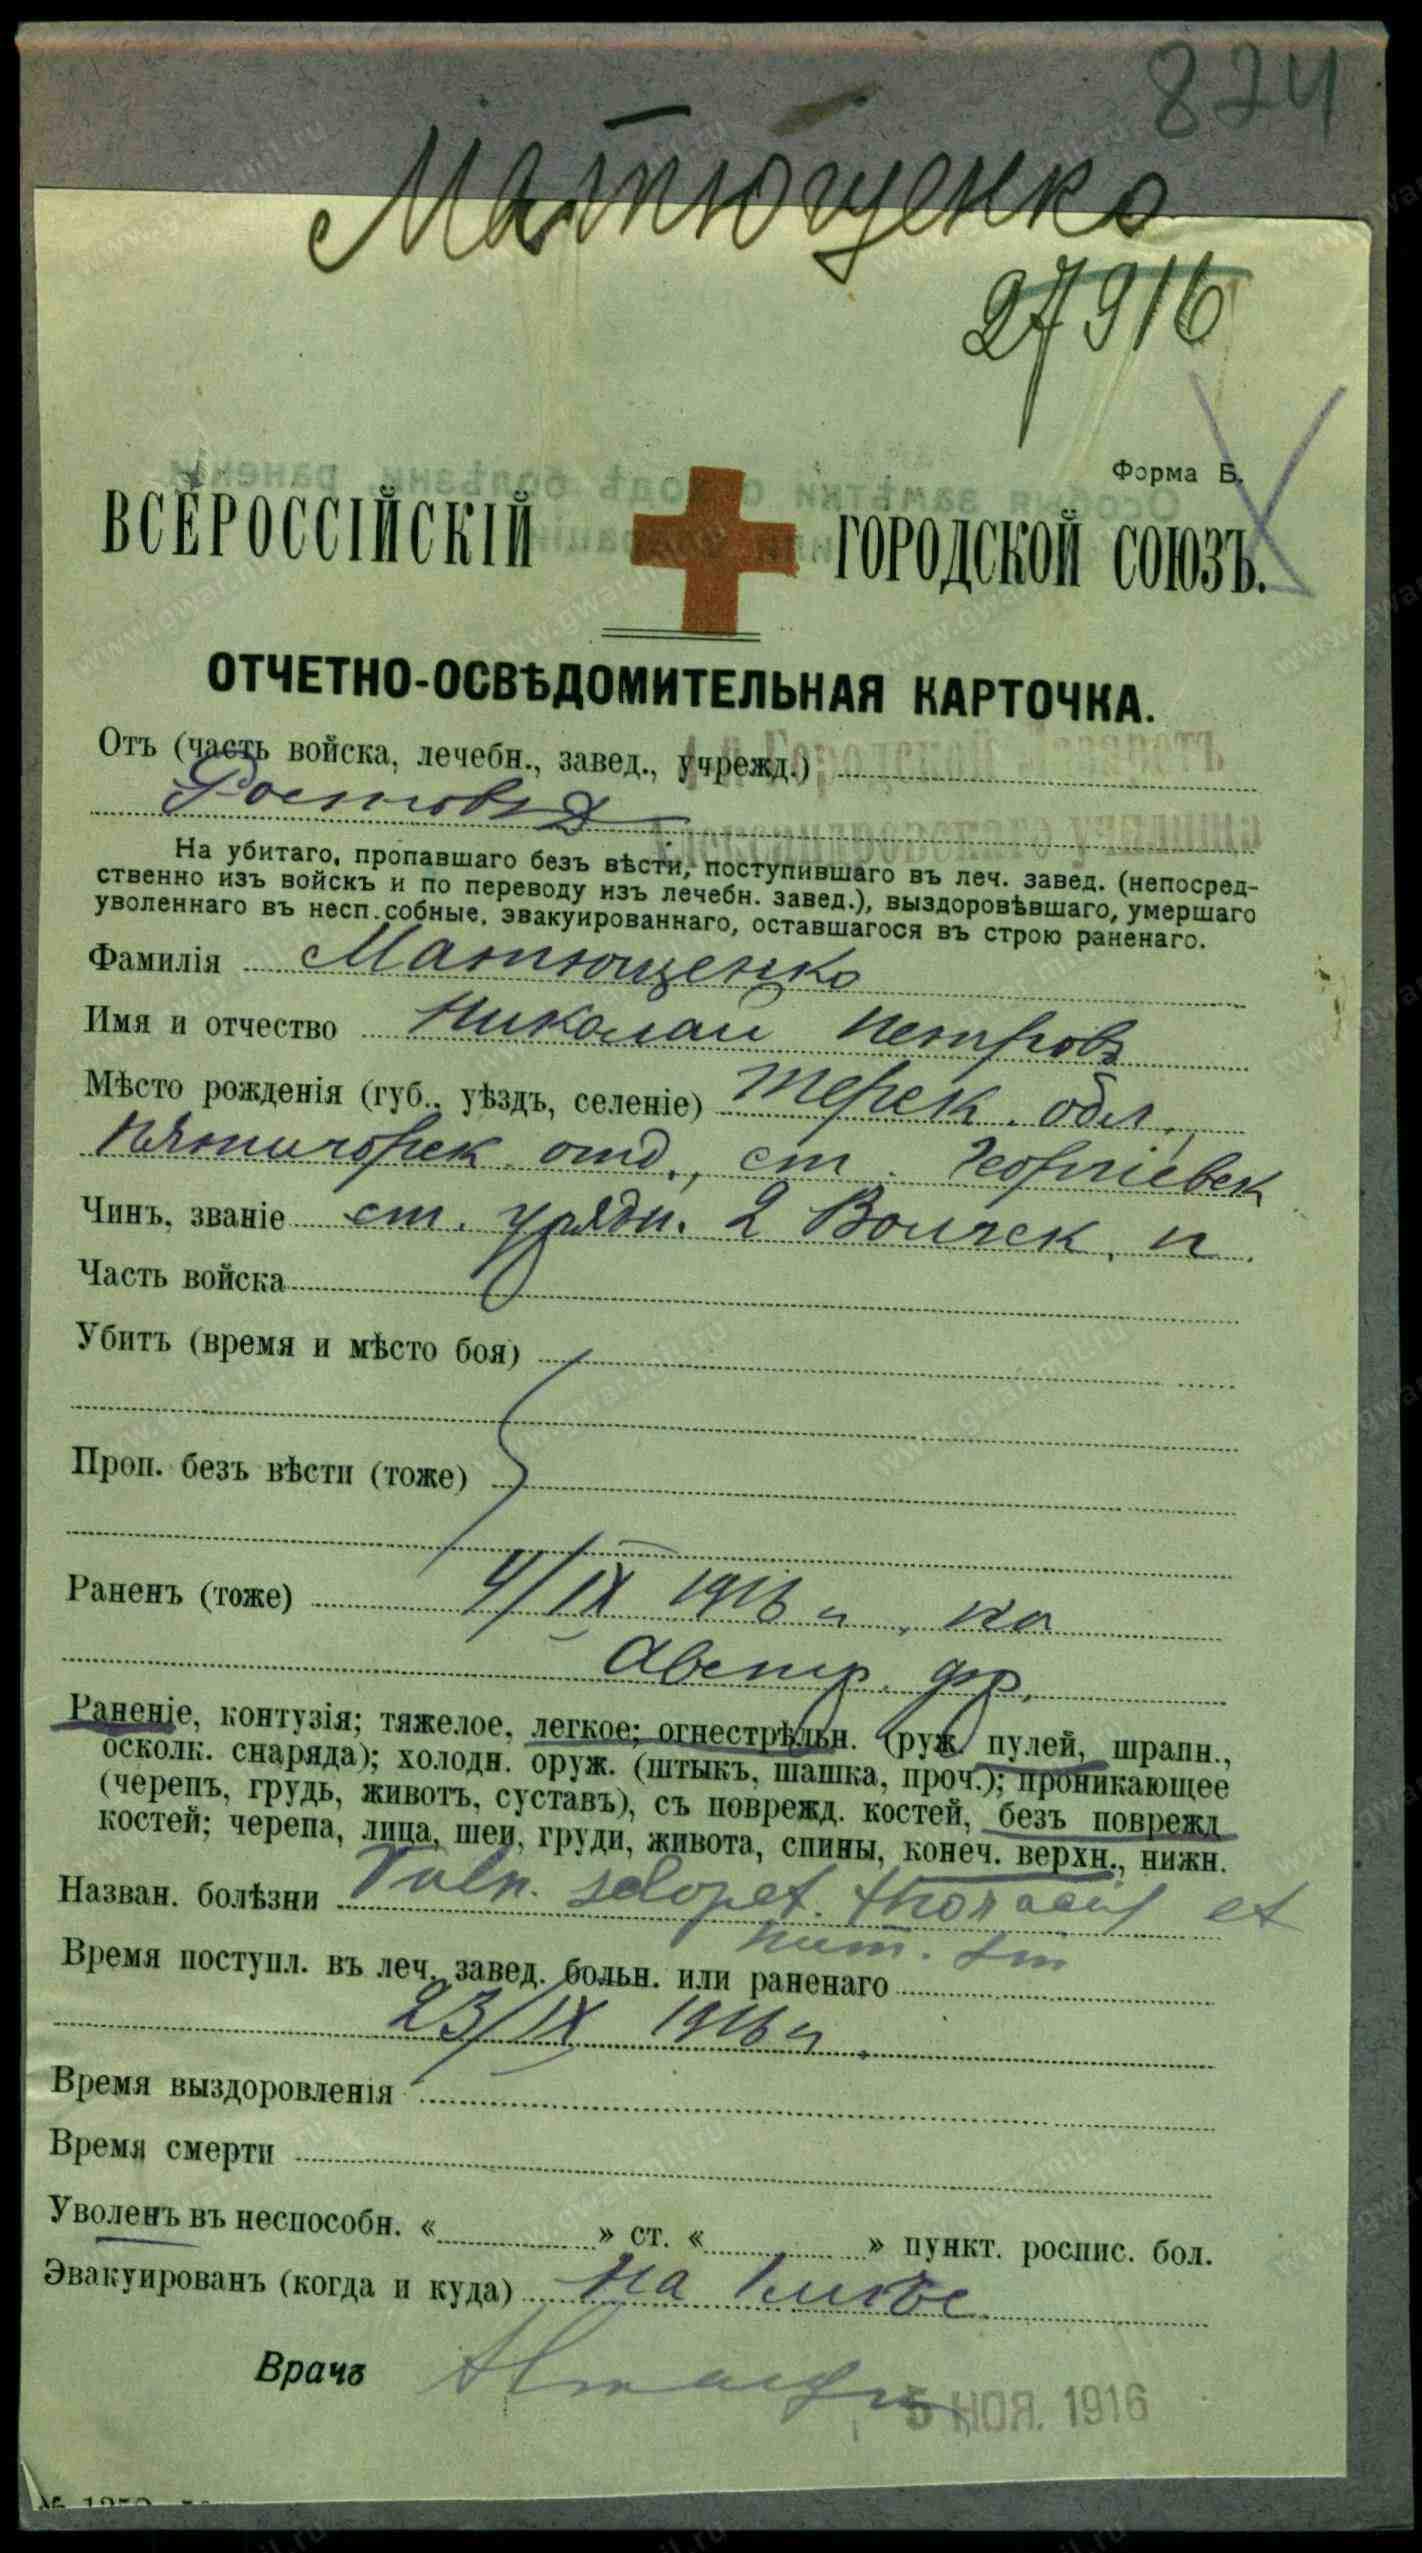 874
Матющенко
27916
Форма Б.
ВСЕРОССІЙСКІЙ ГОРОДСКОЙ СОЮЗЪ.
ОТЧЕТНО-ОСВѢДОМИТЕЛЬНАЯ КАРТОЧКА.
Отъ (часть войска, лечебн., завед., учрежд.)
Ростовъ Д
На убитаго, пропавшаго безъ вѣсти, поступившаго въ леч. завед. (непосред-
ственно изъ войскъ и по переводу изъ лечебн. завед.), выздоровѣвшаго, умершаго
уволеннаго въ несп.собные, эвакуированнаго, оставшагося въ строю раненаго.
Фамилія Матющенко
Имя и отчество Николай Петровъ
Мѣсто рожденія (губ., уѣздъ, селеніе) Терек. обл.,
Пятигорск. отд., ст. Георгіевск
Чинъ, званіе ст. урядн. 2 Волгск. п.
Часть войска
Убитъ (время и мѣсто боя)
Проп. безъ вѣсти (тоже)
Раненъ (тоже) 4/IX 1916 г., на
Австр. фр.
Раненіе, контузія; тяжелое, легкое; огнестрѣльн. (руж. пулей, шрапн.,
осколк. снаряда); холодн. оруж. (штыкъ, шашка, проч.); проникающее
(черепъ, грудь, животъ, суставъ), съ поврежд. костей, безъ поврежд
костей; черепа, лица, шеи, груди, живота, спины, конеч. верхн., нижн.
Назван. болѣзни Vuln. sclopet. thoracis et
hum. sin
Время поступл. въ леч. завед. больн. или раненаго
23/IX 1916 г.
Время выздоровленія
Время смерти
Уволенъ въ неспособн. « » ст. « » пункт. роспис. бол.
Эвакуированъ (когда и куда) на
Врачъ
5 НОЯ. 1916